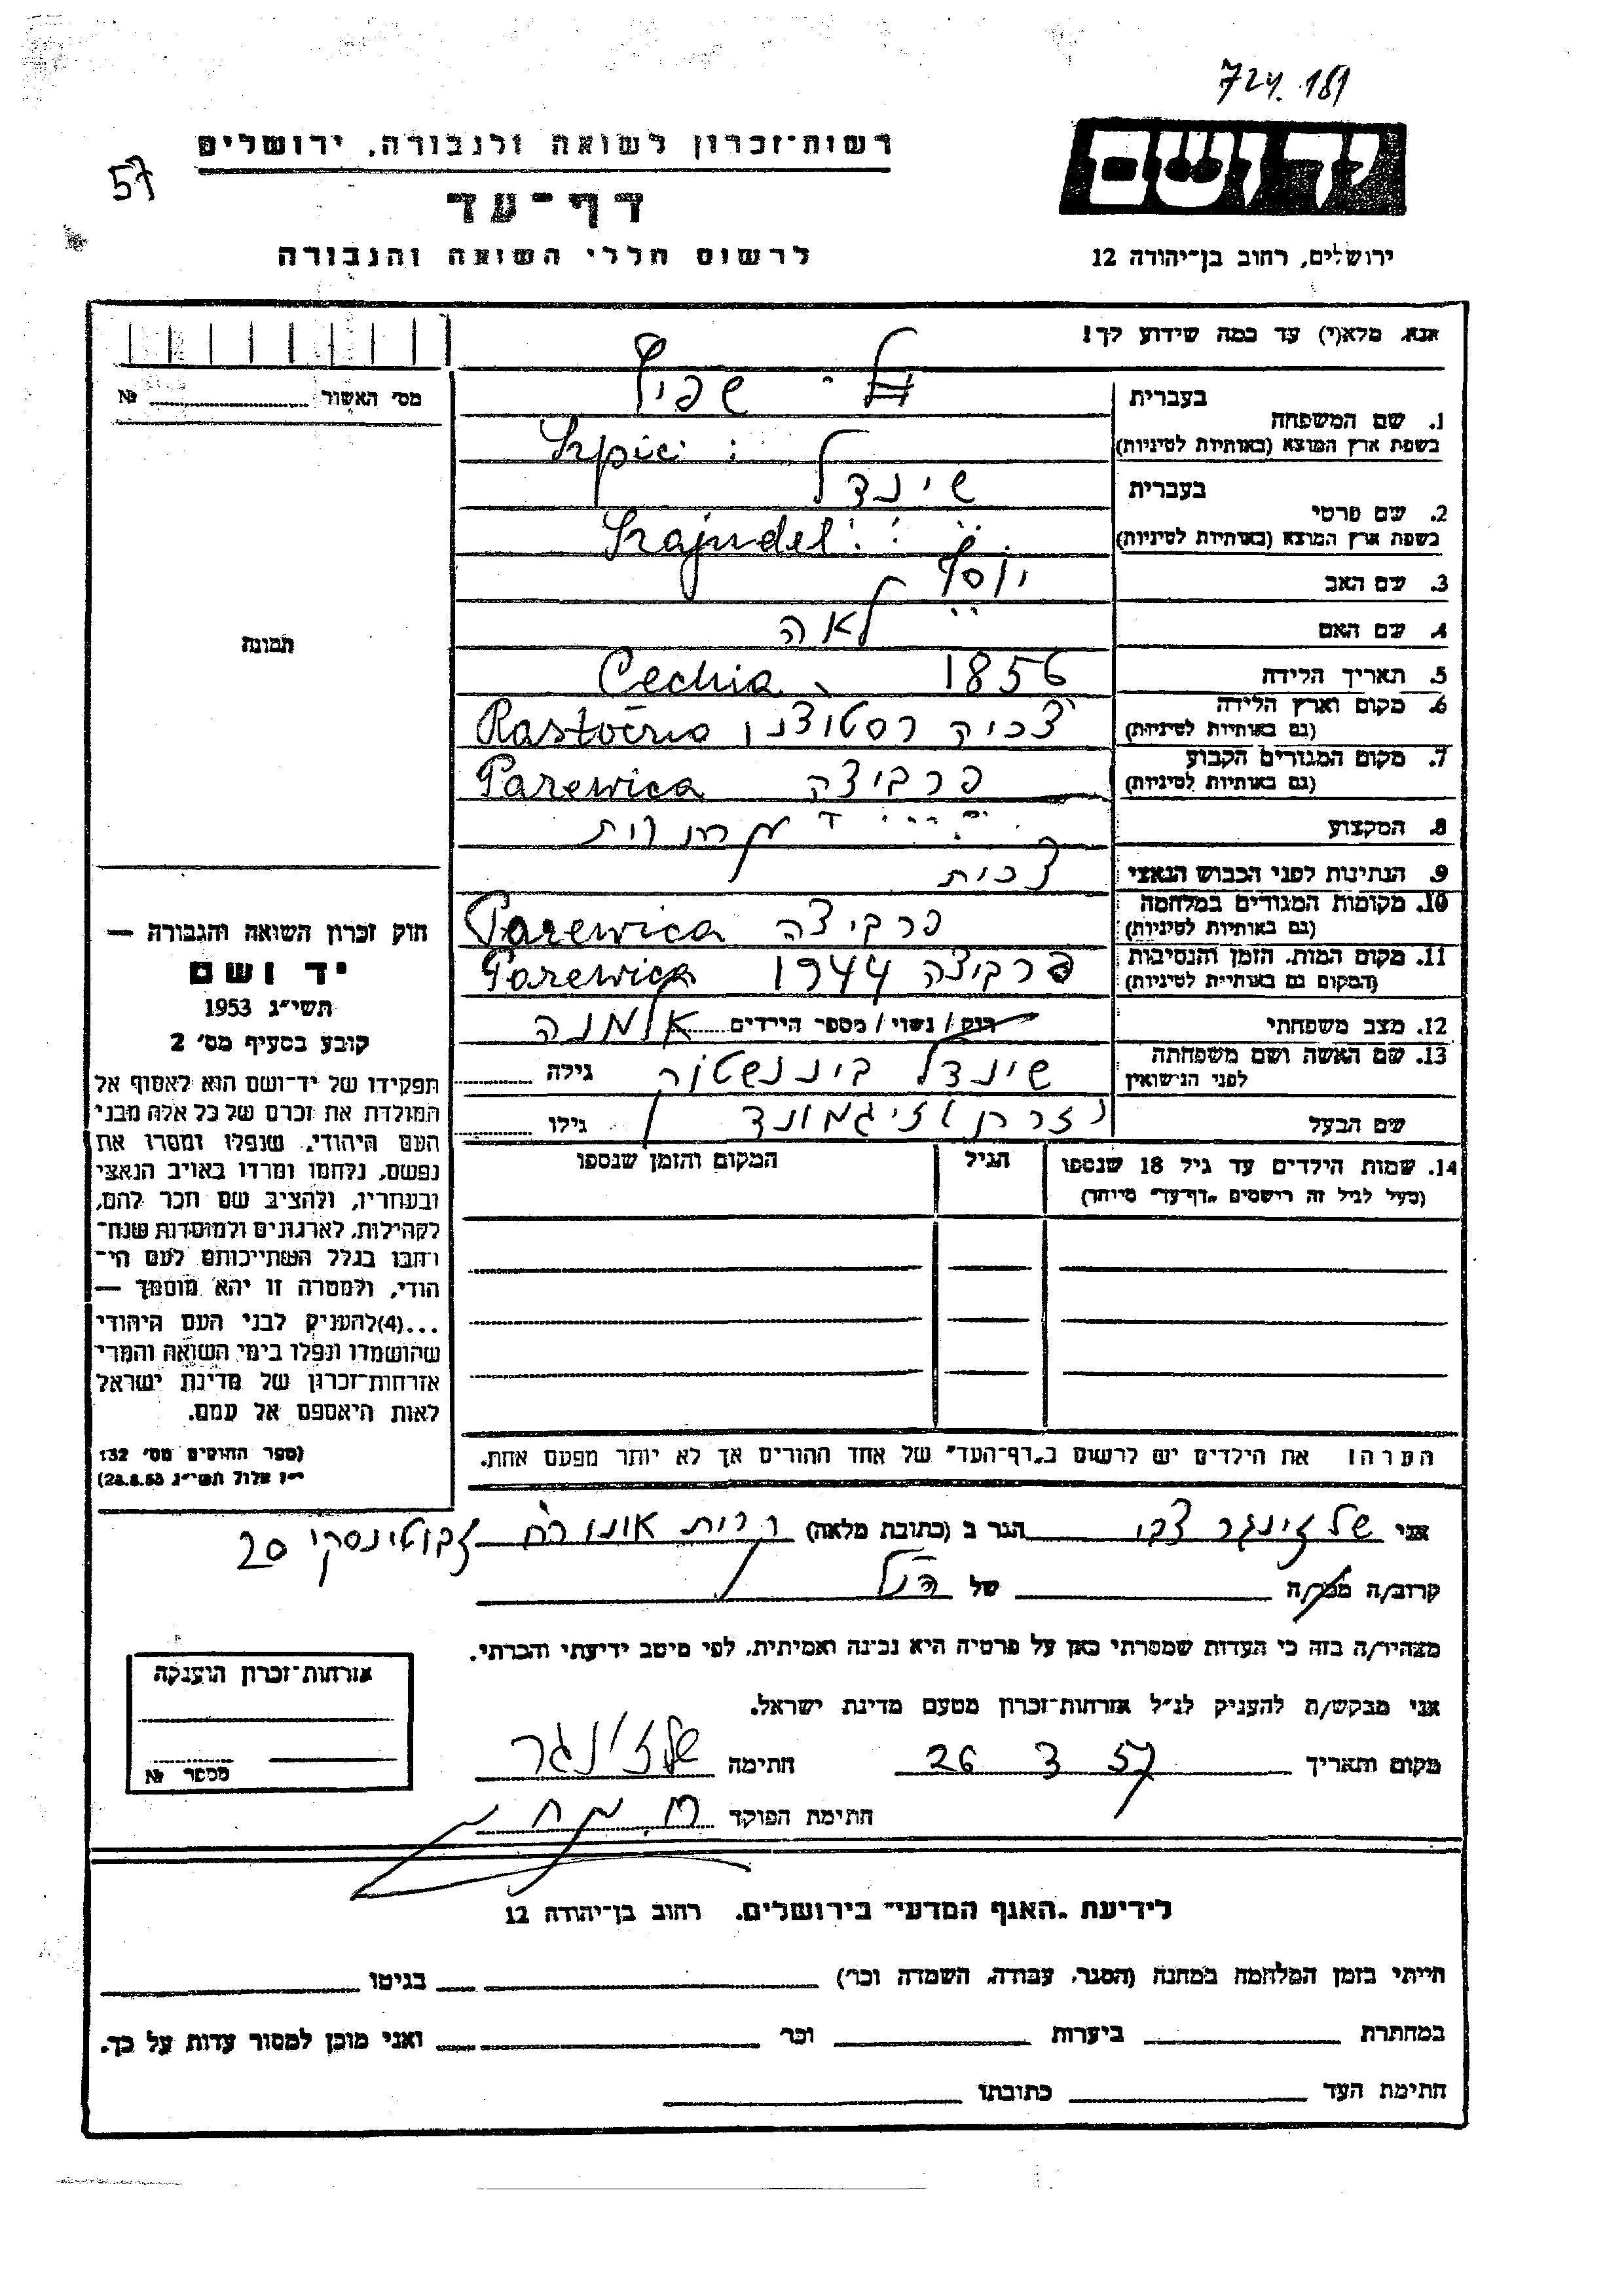 724.181
57
רשות־זכרון לשואה ולגבורה, ירושלים
יד ושם
דף־עד
לרשום חללי השואה והגבורה
ירושלים, רחוב בן־יהודה 12
אנא, מלא(י) עד כמה שידוע לך!
מס' האשור № 
1. שם המשפחה
בעברית שפיץ
בשפת ארץ המוצא (באותיות לטיניות) Szpic
2. שם פרטי
בעברית שינדל
בשפת ארץ המוצא (באותיות לטיניות) Szajndel
3. שם האב יוסף
4. שם האם לאה
5. תאריך הלידה 1856 Cechia
6. מקום וארץ הלידה צ'כיה רסטוצנו Rastočno
(גם באותיות לטיניות)
7. מקום המגורים הקבוע פרביצה Parewica
(גם באותיות לטיניות)
8. המקצוע
9. הנתינות לפני הכבוש הנאצי צ'כית
10. מקומות המגורים במלחמה פרביצה Parewica
(גם באותיות לטיניות)
11. מקום המות, הזמן והנסיבות פרביצה 1944 Parewica
(המקום גם באותיות לטיניות)
12. מצב משפחתי רוק/נשוי/מספר הילדים אלמנה
13. שם האשה ושם משפחתה שינדל גילה
לפני הנישואין
שם הבעל גילו
14. שמות הילדים עד גיל 18 שנספו הגיל המקום והזמן שנספו
(מעל לגיל זה רושמים "דף־עד" מיוחד)
הערה: את הילדים יש לרשום ב"דף־העד" של אחד ההורים אך לא יותר מפעם אחת.
תמונה
חוק זכרון השואה והגבורה —
יד ושם
תשי"ג 1953
קובע בסעיף מס' 2
תפקידו של יד־ושם הוא לאסוף אל
המולדת את זכרם של כל אלה מבני
העם היהודי, שנפלו ומסרו את
נפשם, נלחמו ומרדו באויב הנאצי
ובעוזריו, ולהציב שם וזכר להם,
לקהילות, לארגונים ולמוסדות שנח־
רבו בגלל השתייכותם לעם הי־
הודי, ולמטרה זו יהא מוסמך —
...(4) להעניק לבני העם היהודי
שהושמדו ונפלו בימי השואה והמרי
אזרחות־זכרון של מדינת ישראל
לאות היאספם אל עמם.
(ספר החוקים מס' 132
י"ז אלול תשי"ג 28.8.53)
אני שלזינגר צבי הגר ב (כתובת מלאה) קרית אונו רח' זבוטינסקי 20
קרוב/ה מכר/ה של הנ"ל
מצהיר/ה בזה כי העדות שמסרתי כאן על פרטיה היא נכונה ואמיתית, לפי מיטב ידיעתי והכרתי.
אני מבקש/ת להעניק לנ"ל אזרחות־זכרון מטעם מדינת ישראל.
מקום ותאריך 26 3 57 חתימה שלזינגר
חתימת הפוקד
אזרחות־זכרון הוענקה
מספר №
לידיעת "האגף המדעי" בירושלים. רחוב בן־יהודה 12
הייתי בזמן המלחמה במחנה (הסגר, עבודה, השמדה וכו') בגיטו
במחתרת ביערות וכו' ואני מוכן למסור עדות על כך.
חתימת העד כתובתו